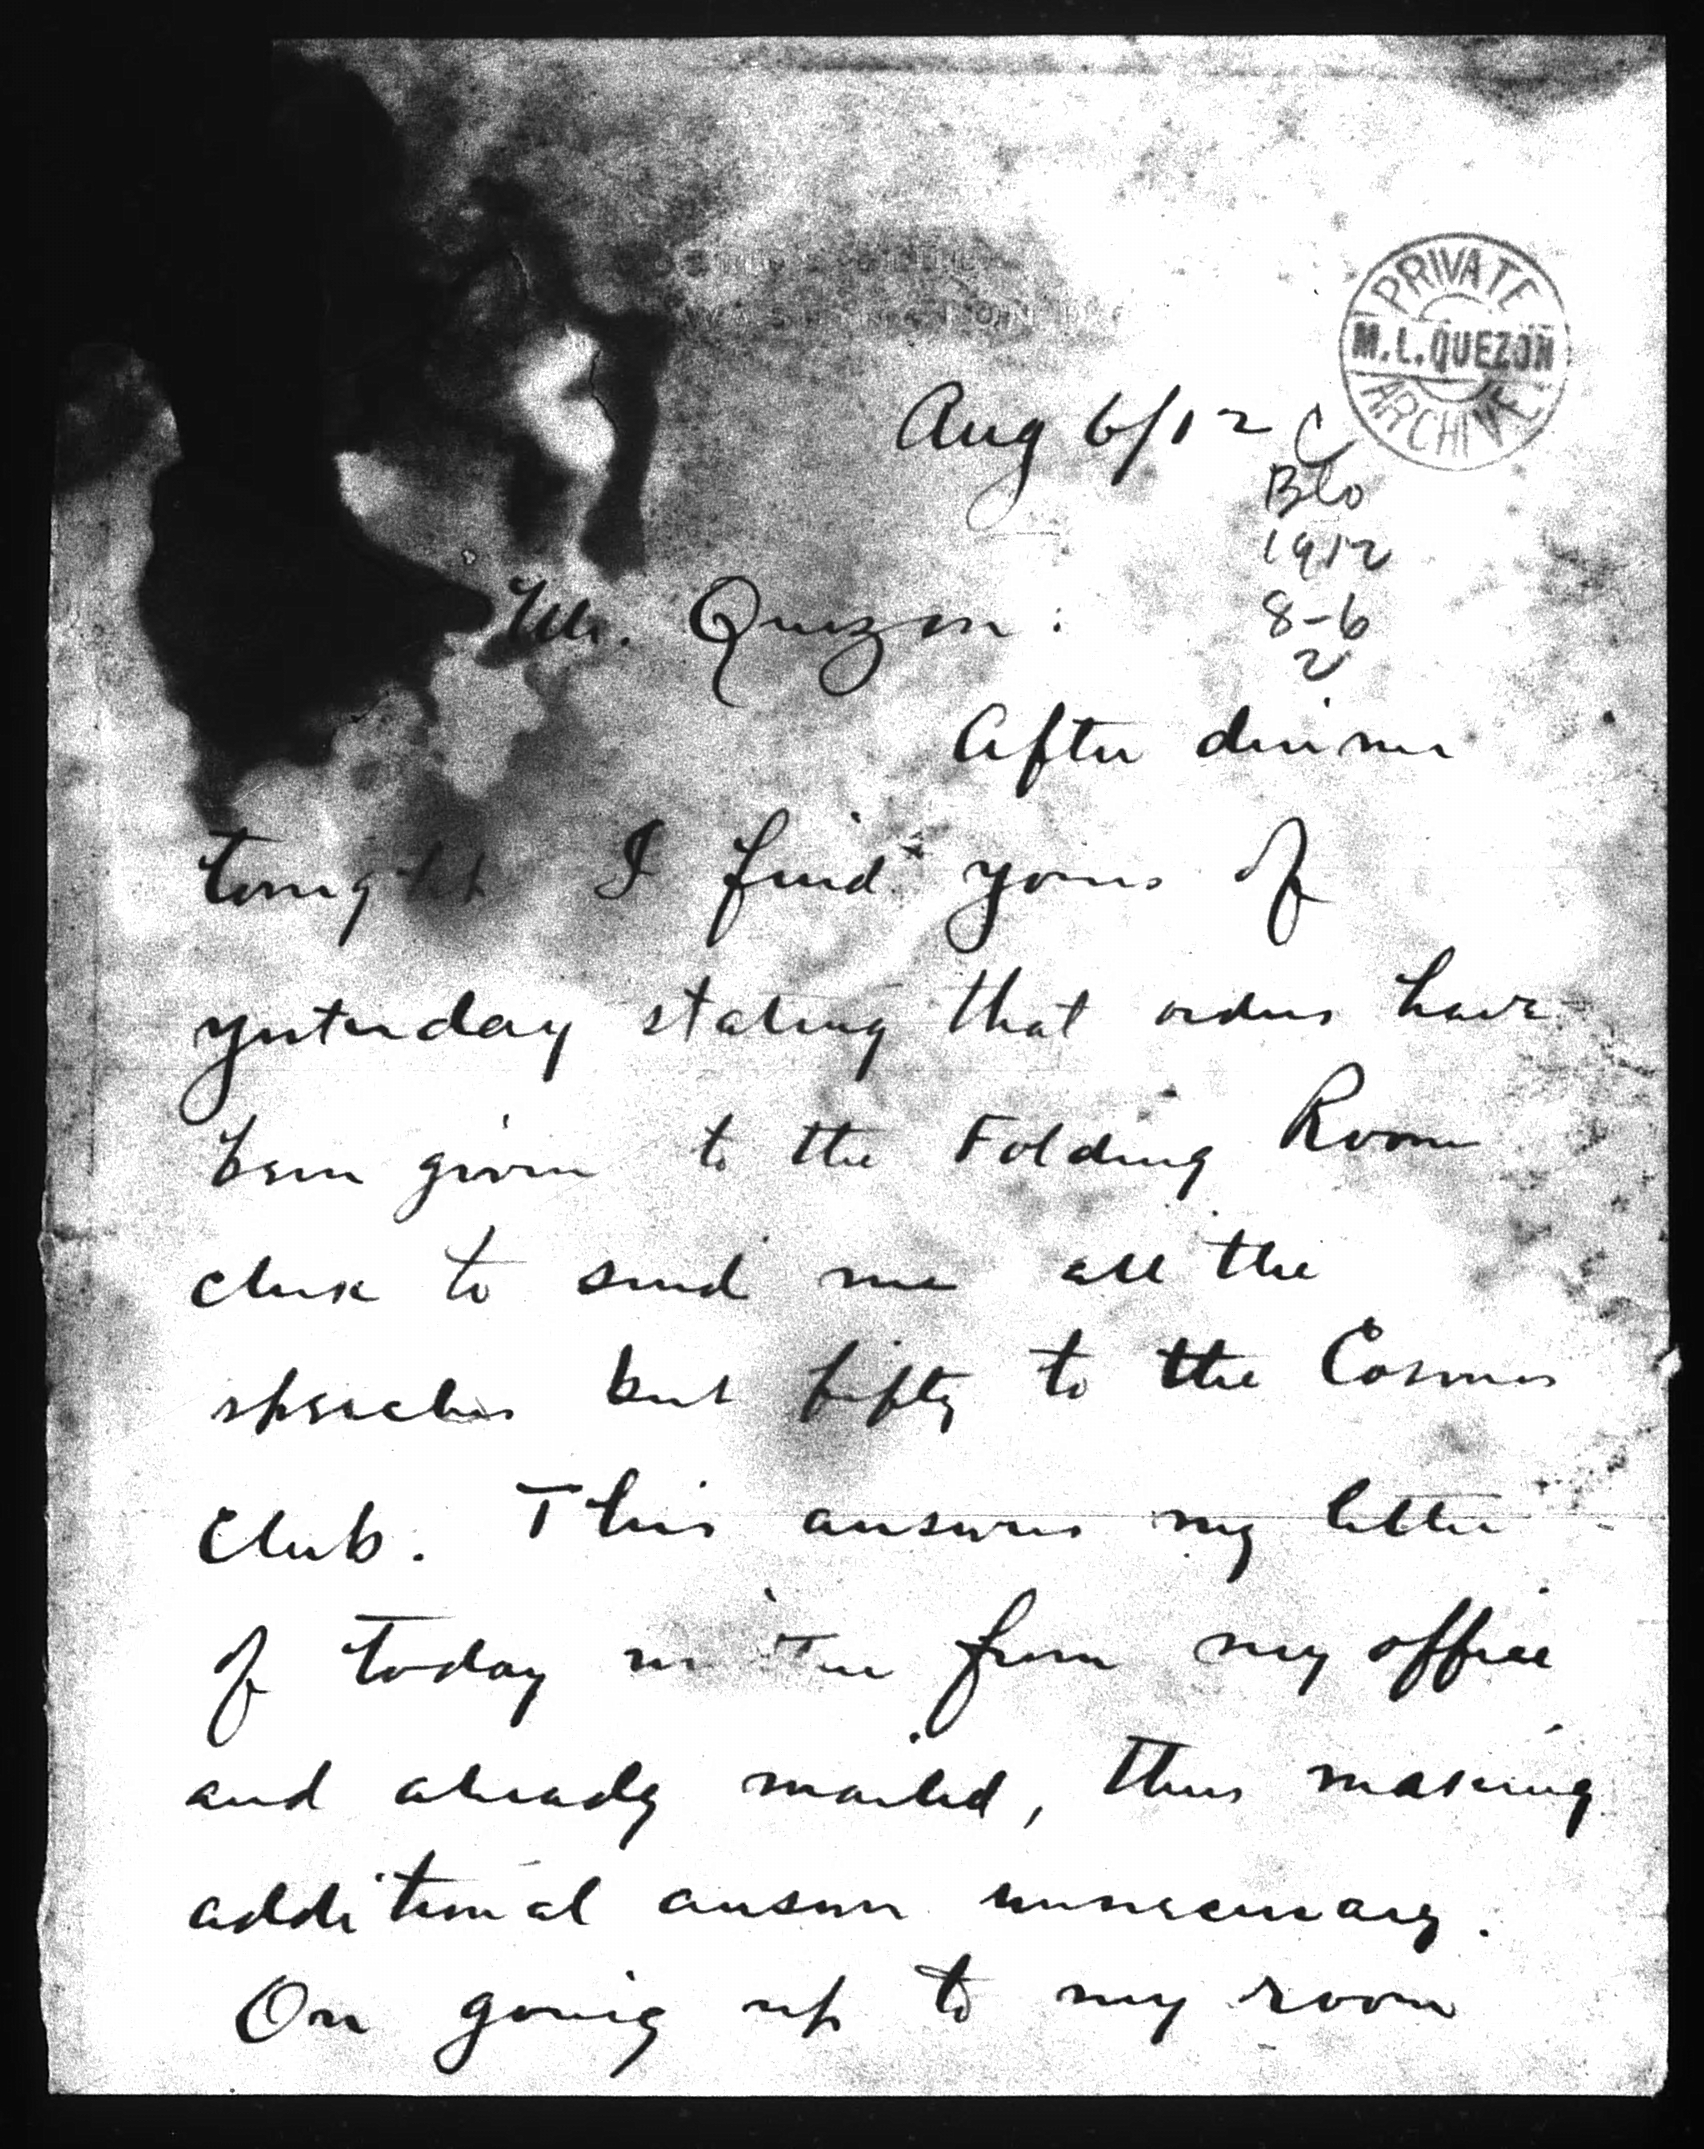 WASHINGTON, D.C.
PRIVATE
M. L. QUEZON
ARCHIVE
Aug 6/12
C
Blo
1912
8-6
2
Mr. Quezon:
After dinner
tonight I find yours of
yesterday stating that orders have
been given to the Folding Room
clerk to send me all the
speeches but fifty to the Cosmos
Club. This answers my letter
of today written from my office
and already mailed, thus making
additional answer unnecessary.
On going up to my room